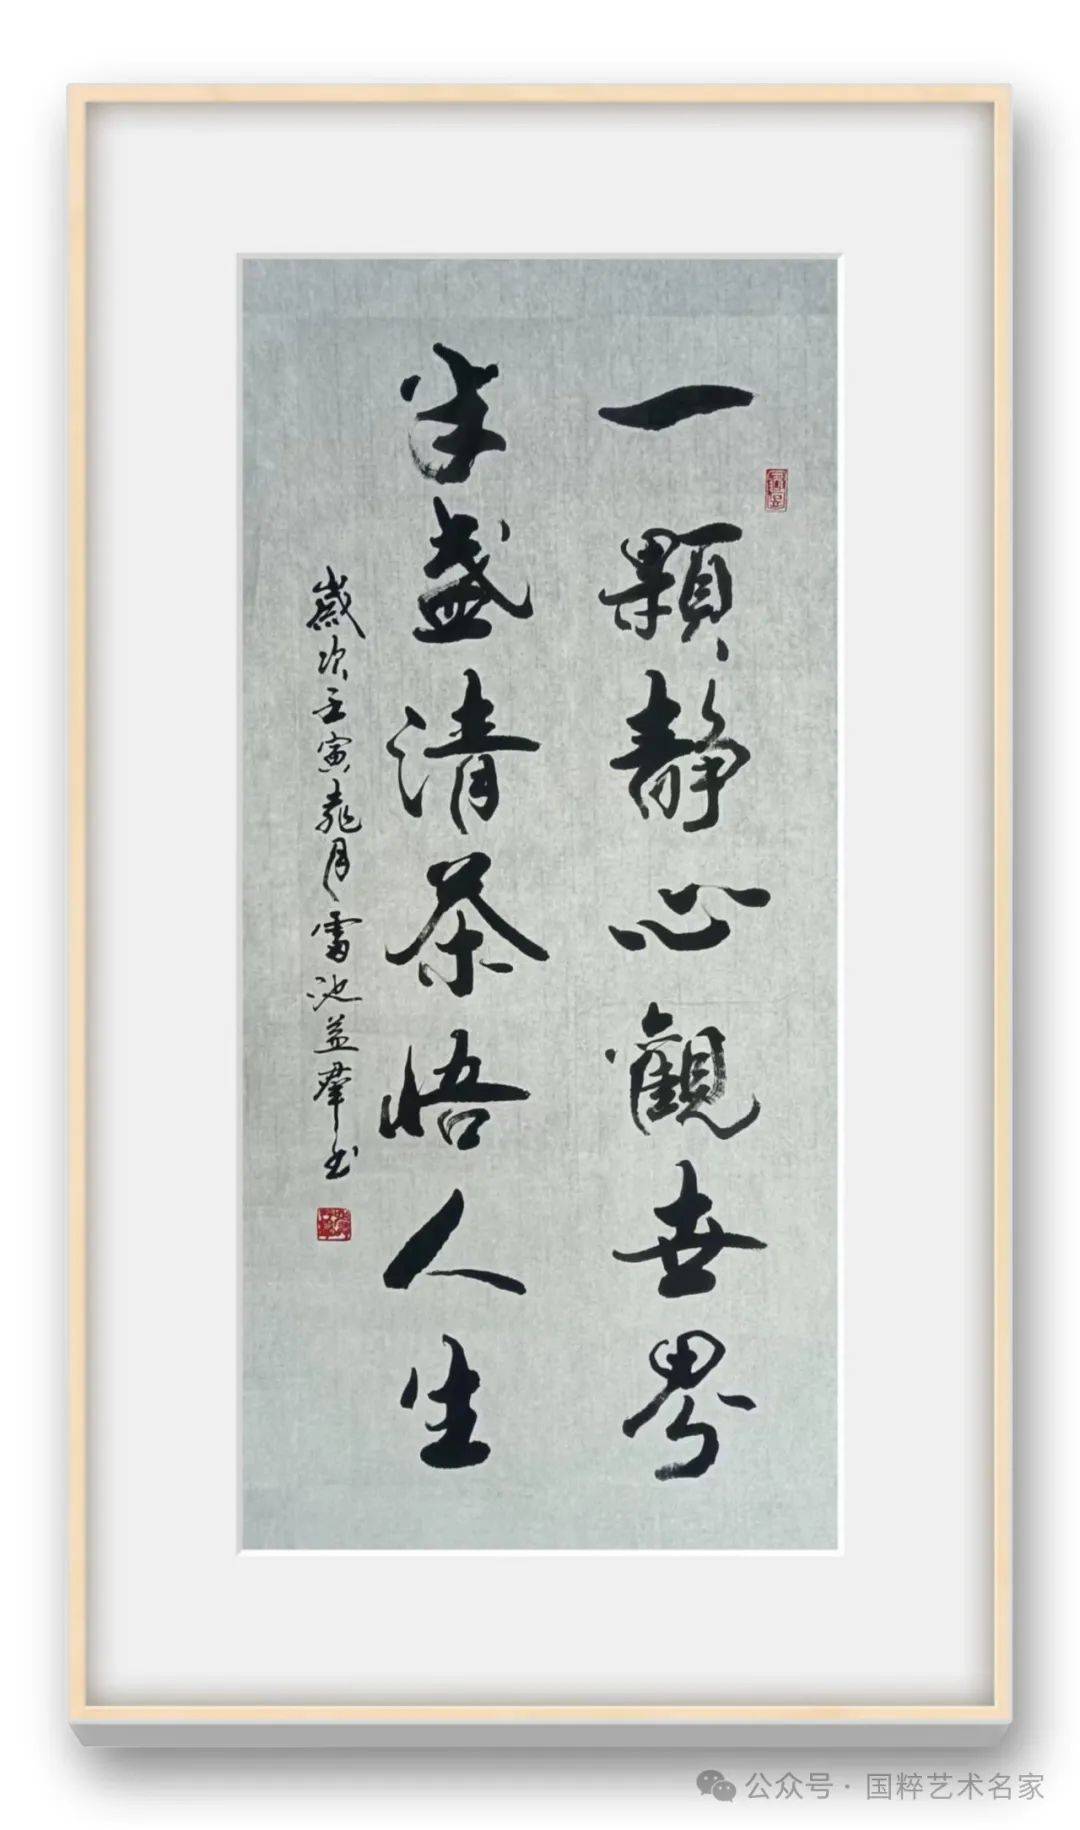 一顆靜心觀世界
半盞清茶悟人生
歲次壬寅龍月雷池益群书
公众号 · 国粹艺术名家